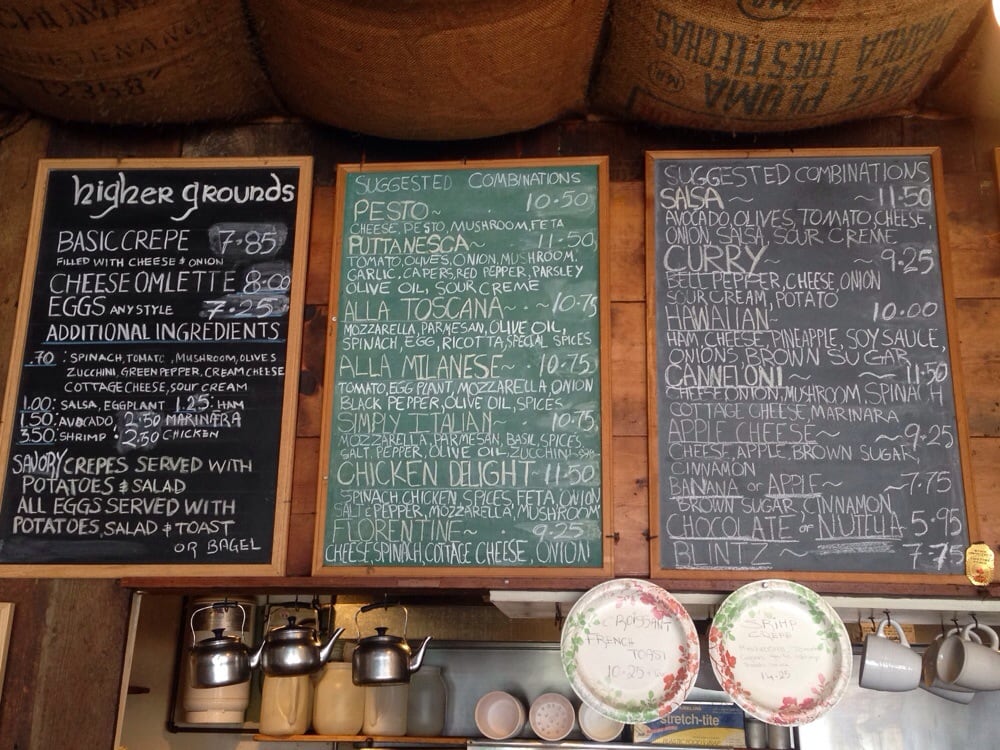 PLUMA
MARCA TRES FLECHAS
higher grounds
BASIC CREPE 7.85
FILLED WITH CHEESE & ONION
CHEESE OMLETTE 8.00
EGGS ANY STYLE 7.25
ADDITIONAL INGREDIENTS
.70 : SPINACH, TOMATO, MUSHROOM, OLIVES
ZUCCHINI, GREEN PEPPER, CREAM CHEESE
COTTAGE CHEESE, SOUR CREAM
1.00: SALSA, EGGPLANT 1.25: HAM
1.50: AVOCADO, 2.50 MARINARA
3.50: SHRIMP · 2.50 CHICKEN
SAVORY CREPES SERVED WITH
POTATOES & SALAD
ALL EGGS SERVED WITH
POTATOES, SALAD & TOAST
OR BAGEL
SUGGESTED COMBINATIONS
PESTO~ 10.50
CHEESE, PESTO, MUSHROOM, FETA
PUTTANESCA~ 11.50
TOMATO, OLIVES, ONION, MUSHROOM,
GARLIC, CAPERS, RED PEPPER, PARSLEY
OLIVE OIL, SOUR CREME
ALLA TOSCANA~ ·~10.75
MOZZARELLA, PARMESAN, OLIVE OIL,
SPINACH, EGG, RICOTTA, SPECIAL SPICES
ALLA MILANESE~ 10.75
TOMATO, EGG PLANT, MOZZARELLA, ONION
BLACK PEPPER, OLIVE OIL, SPICES
SIMPLY ITALIAN~ 10.75
MOZZARELLA, PARMESAN, BASIL, SPICES,
SALT, PEPPER, OLIVE OIL, ZUCCHINI
CHICKEN DELIGHT 11.50
SPINACH CHICKEN, SPICES, FETA, ONION
SALT & PEPPER, MOZZARELLA, MUSHROOM
FLORENTINE~ 9.25
CHEESE, SPINACH, COTTAGE CHEESE, ONION
SUGGESTED COMBINATIONS
SALSA ~ 11.50
AVOCADO, OLIVES, TOMATO, CHEESE,
ONION, SALSA, SOUR CREME
CURRY~ ~9.25
BELL PEPPER, CHEESE, ONION
SOUR CREAM, POTATO
HAWAIIAN~ 10.00
HAM, CHEESE, PINEAPPLE, SOY SAUCE,
ONIONS, BROWN SUGAR
CANNELONI~ ~11.50
CHEESE ONION, MUSHROOM SPINACH
COTTAGE CHEESE MARINARA
APPLE CHEESE~ ~9.25
CHEESE, APPLE, BROWN SUGAR,
CINNAMON
BANANA or APPLE~ ~7.75
BROWN SUGAR, CINNAMON
CHOCOLATE or NUTELLA 5.95
BLINTZ~ ~7.75
CROISSANT
FRENCH
TOAST
10.25
SRIMP
CREPE
14.25
stretch-tite